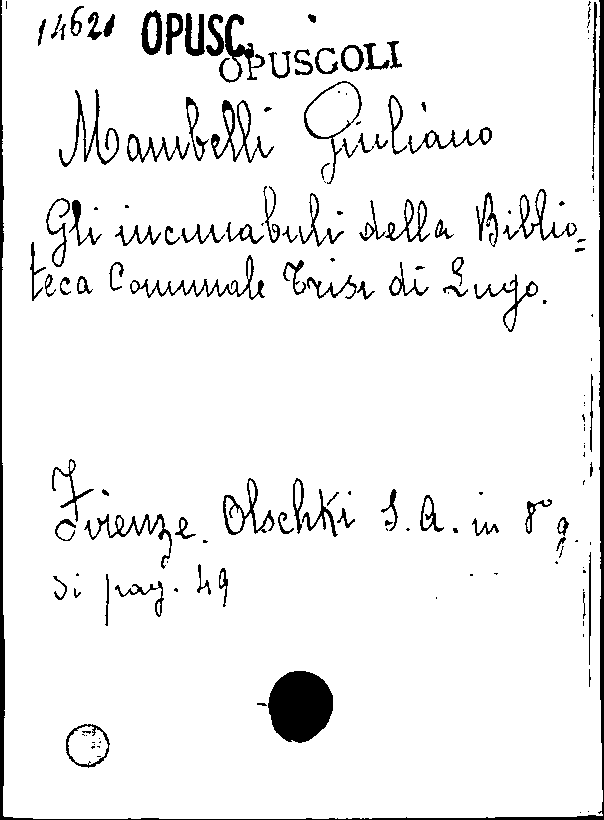 14621 OPUSC.
OPUSCOLI
Mambelli Giuliano
Gli incunabuli della Biblio=
teca Comunale Trisi di Lugo.
Firenze. Olschki S. A. in 8° g.
di pag. 49